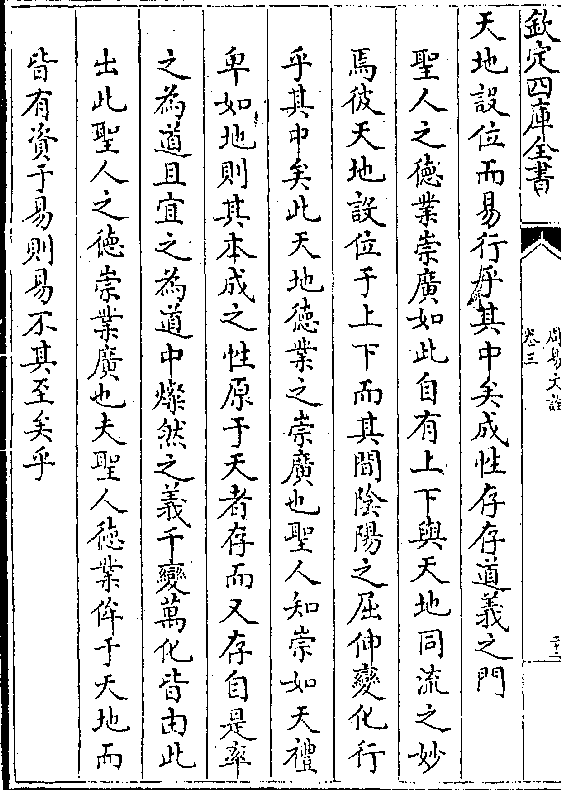 欽定四庫全書
周易文詮
卷三
天地設位而易行乎其中矣成性存存道義之門
聖人之德業崇廣如此自有上下與天地同流之妙
焉彼天地設位于上下而其間陰陽之屈伸變化行
乎其中矣此天地德業之崇廣也聖人知崇如天禮
卑如地則其本成之性原于天者存而又存自是率
之為道且宜之為道中燦然之義千變萬化皆由此
出此聖人之德崇業廣也夫聖人德業侔于天地而
皆有資于易則易不其至矣乎